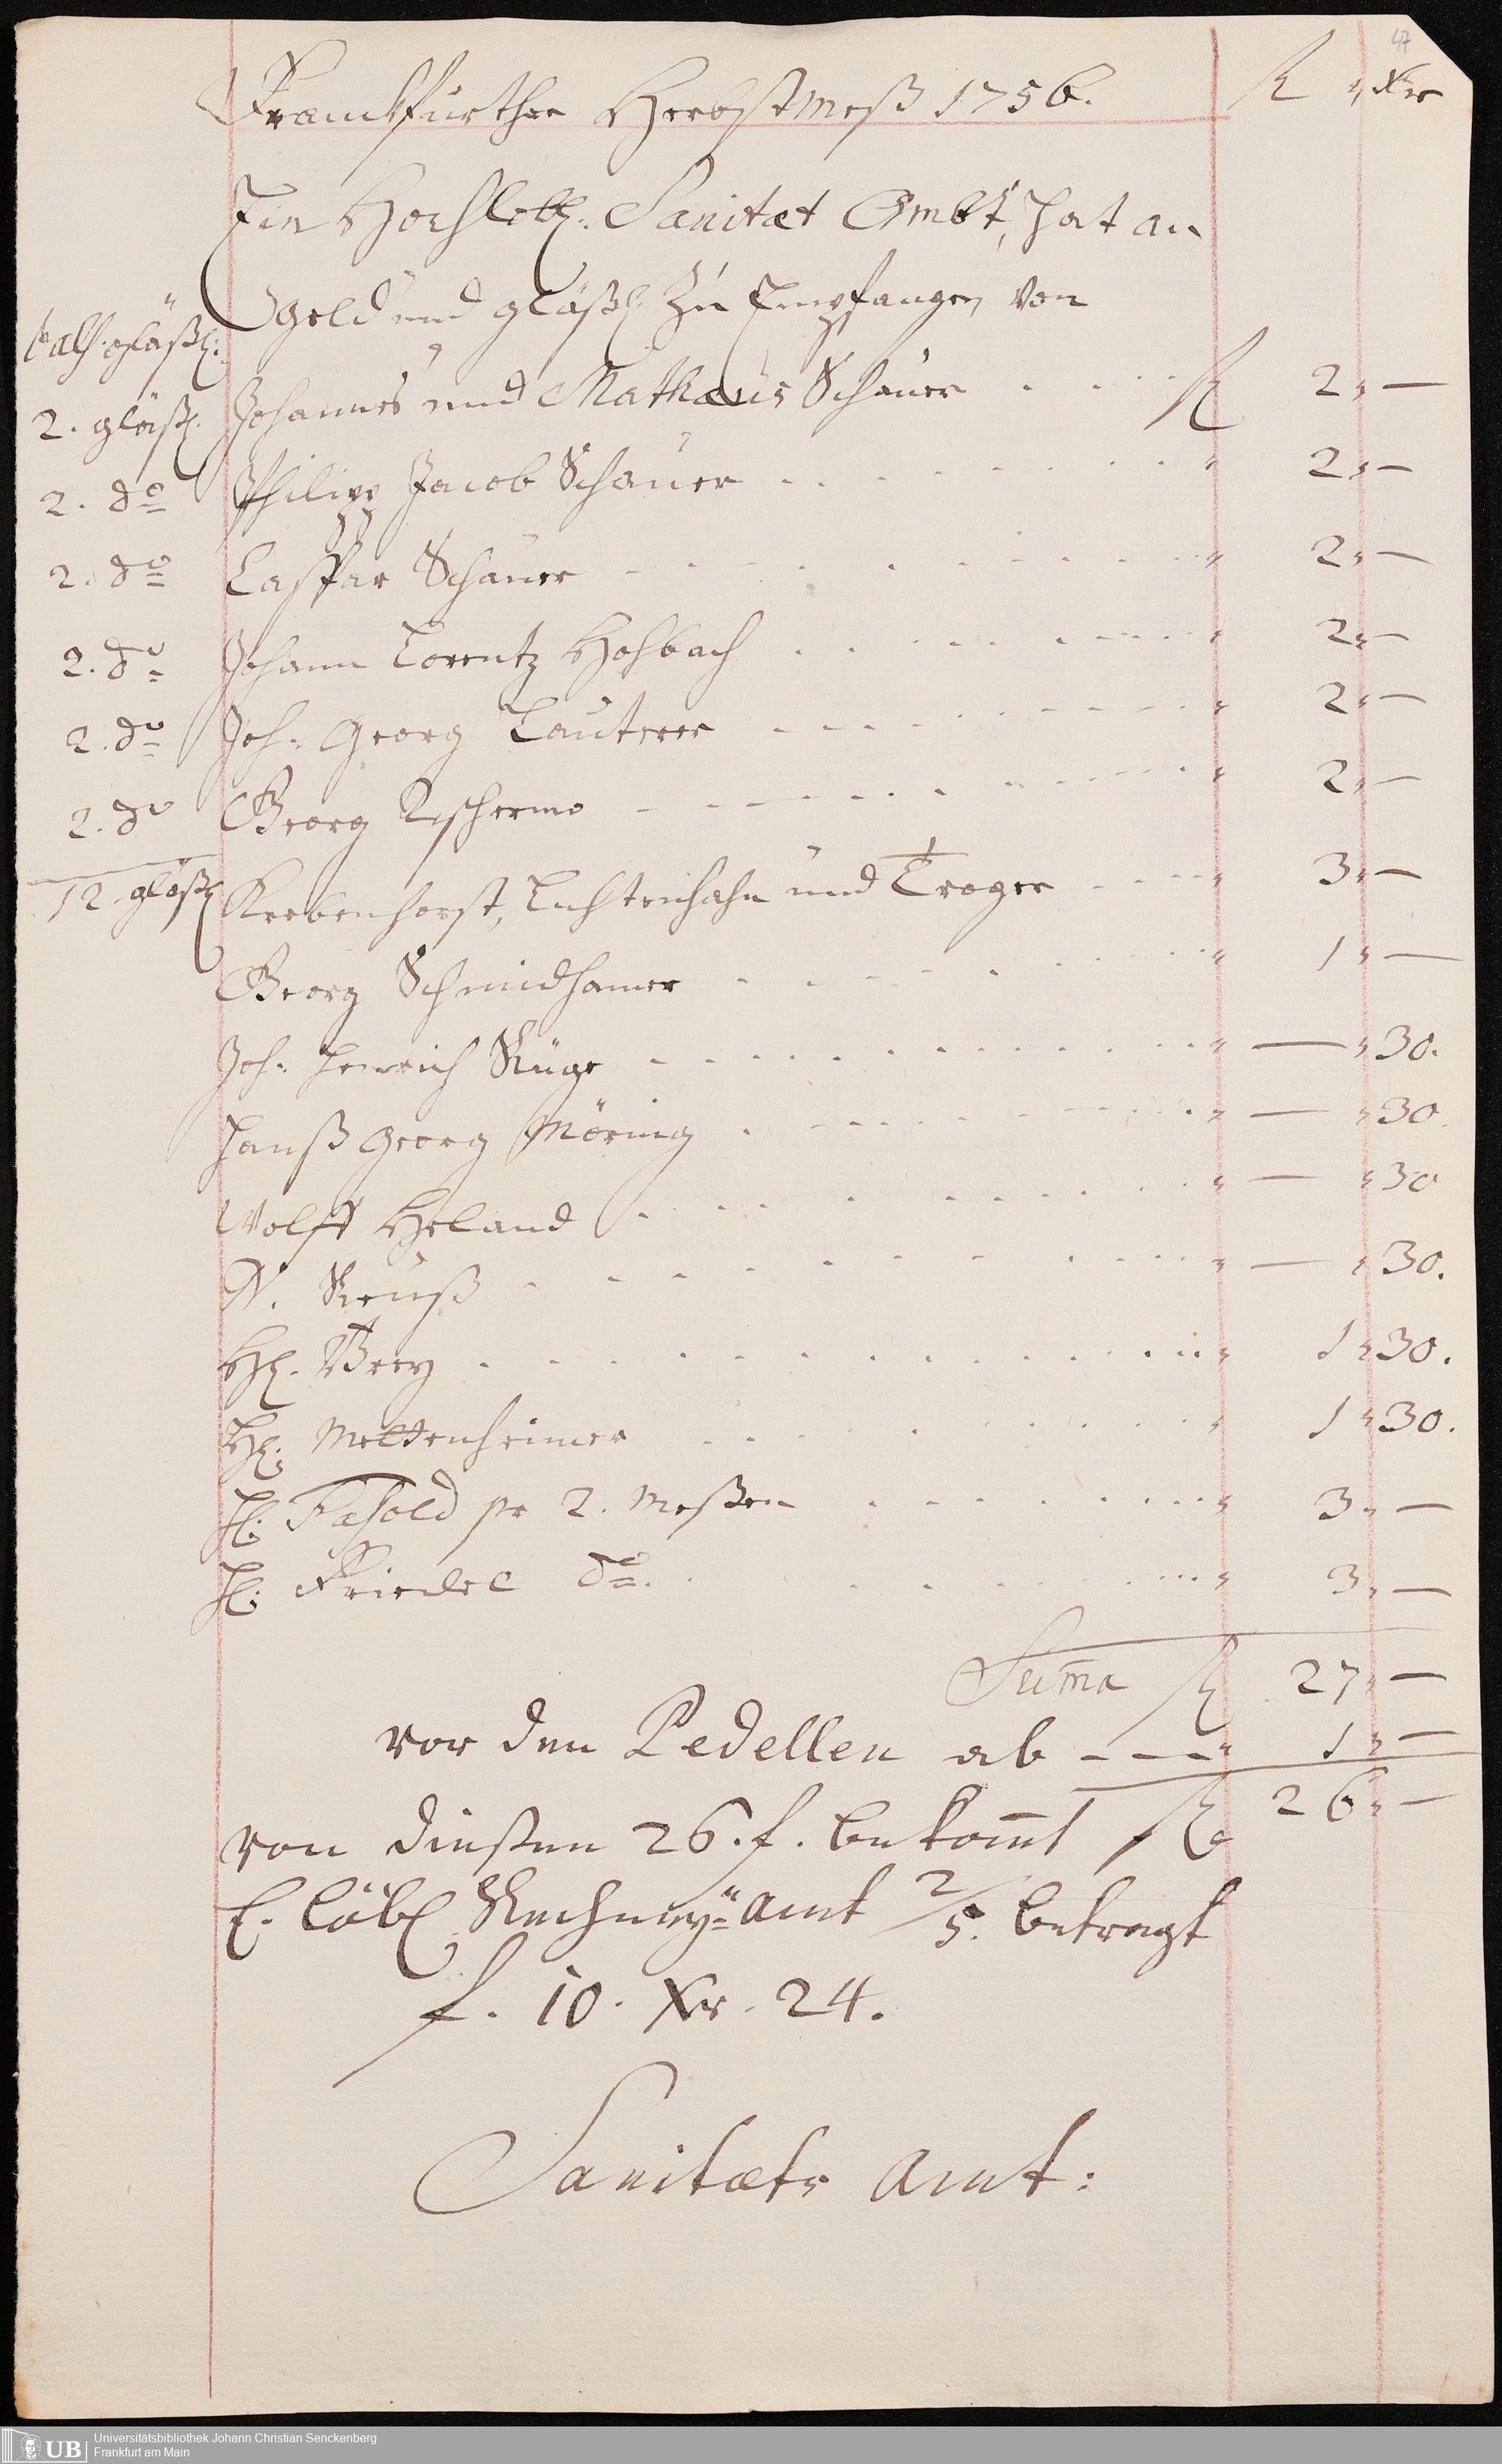 47
Franckfurther Herbst Meß 1756. f " Xr
Ein Hochlöbl. Sanitæt Ambt, hat an
Geld und gläßl. Zu Empfangen von
balß. gläßl.
2. gläßl. Johannes und Mathæus Schauer . . . . f 2 " —
2. do Philipp Jacob Schauer . . . . " 2 " —
2. do Casspar Schauer . . . . " 2 " —
2. do Johann Lorentz Hohbach . . . . " 2 " —
2. do Joh: Georg Lauterer . . . . " 2 " —
2. do Georg . . . . " 2 " —
12. gläßl Krebenhorst, Lichtenhahn und Troger . . . . " 3 " —
Georg Schmidhamer . . . . " 1 " —
Joh: Henrich Rüge . . . . " — " 30.
Hanß Georg Möring . . . . " — " 30.
Wolff Heland . . . . " — " 30
N. Reuß . . . . " — " 30.
HE. Brey . . . . " 1 " 30.
HE. Mettenheimer . . . . " 1 " 30.
H: Fasold pr 2. Meßen . . . . " 3 " —
H: Friedel do. . . . . " 3 " —
Suma f 27 " —
vor den Pedellen ab — — — " 1 " —
f 26 " —
von dießen 26. f. bekomt
E. löbl Rechney-Amt 2/5. betragt
f. 10. Xr. 24.
Sanitæts Amt:
UB
Universitätsbibliothek Johann Christian Senckenberg
Frankfurt am Main